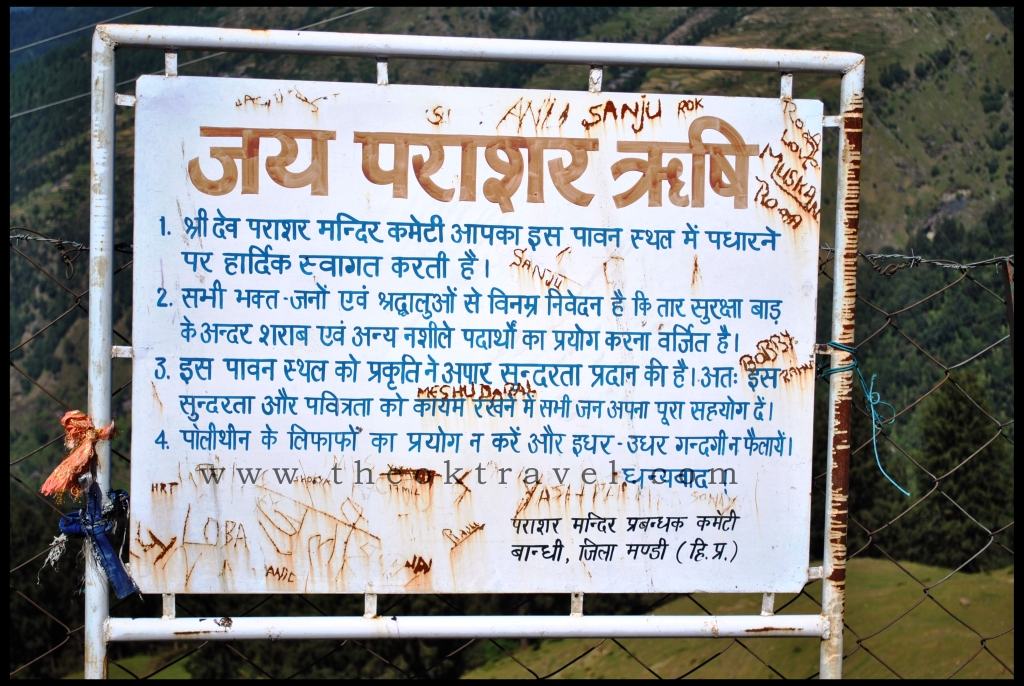 SANJU ROK
जय पराशर ऋषि
MUSKAN
1. श्री देव पराशर मन्दिर कमेटी आपका इस पावन स्थल में पधारने
पर हार्दिक स्वागत करती है।
SANJU
2. सभी भक्त-जनों एवं श्रद्धालुओं से विनम्र निवेदन है कि तार सुरक्षा बाड़
के अन्दर शराब एवं अन्य नशीले पदार्थों का प्रयोग करना वर्जित है।
BOBBY
3. इस पावन स्थल को प्रकृति ने अपार सुन्दरता प्रदान की है। अतः इस
सुन्दरता और पवित्रता को कायम रखने में सभी जन अपना पूरा सहयोग दें।
4. पोलीथीन के लिफाफों का प्रयोग न करें और इधर-उधर गन्दगी न फैलायें।
www.theoktravel.com
धन्यबाद
HRT
LOBA
पराशर मन्दिर प्रबन्धक कमेटी
बान्धी, जिला मण्डी (हि.प्र.)